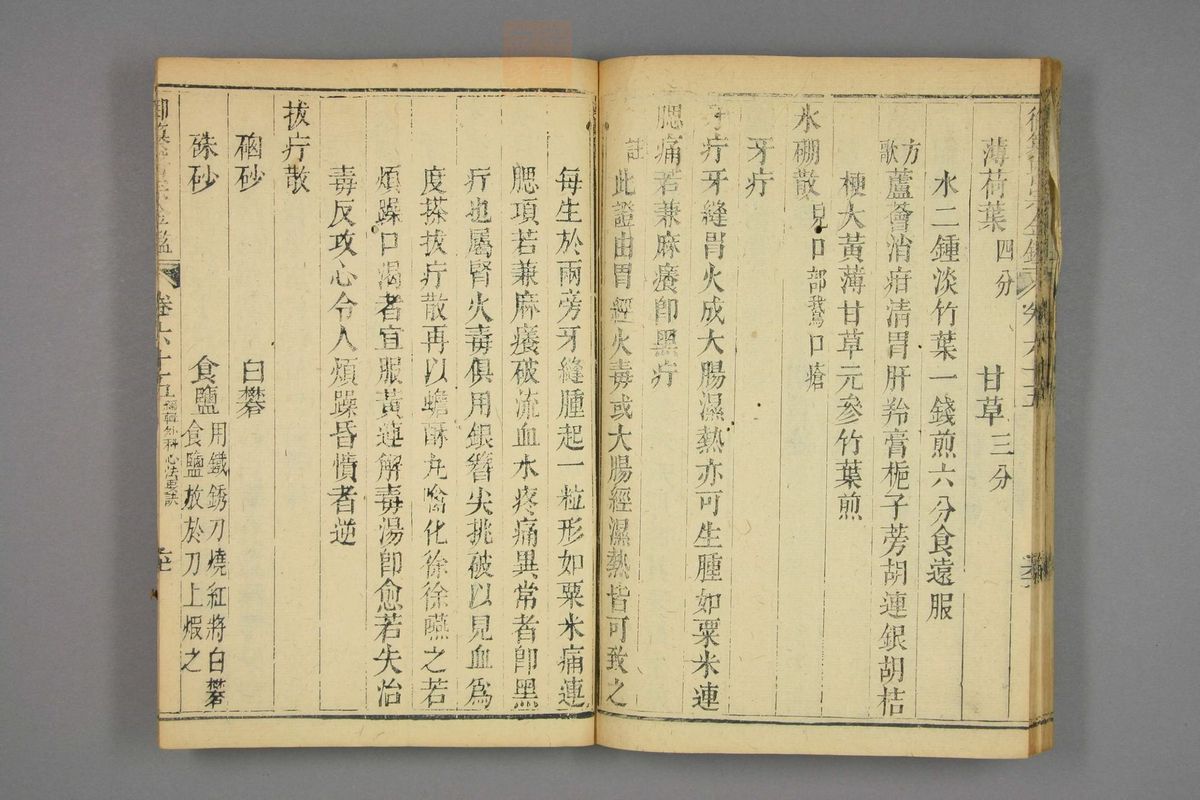 薄荷葉四分　甘草三分
水二鍾淡竹葉一錢煎六分食遠服
方歌
蘆薈消疳清胃肝羚膏梔子蒡胡連銀胡桔
極大黃薄甘草元參竹葉煎
水硼散見口部鵞口瘡
牙疔
牙疔牙縫胃火成大腸濕熱亦可生腫如粟米連
腮痛若兼麻癢卽黑疔
註
此證由胃經火毒或大腸經濕熱皆可致之
每生於兩旁牙縫腫起一粒形如粟米痛連
腮項若兼麻癢破流血水疼痛異常者卽黑
疔也屬腎火毒俱用銀簪尖挑破以見血爲
度搽拔疔散再以蟾酥丸噙化徐徐嚥之若
煩躁口渴者宜服黃連解毒湯卽愈若失治
毒反攻心令人煩躁昏憒者逆
拔疔散
硇砂　白礬
硃砂　食鹽用鐵銹刀燒紅將白礬
食鹽放於刀上煅之
卷六十五 編輯外科心法要訣